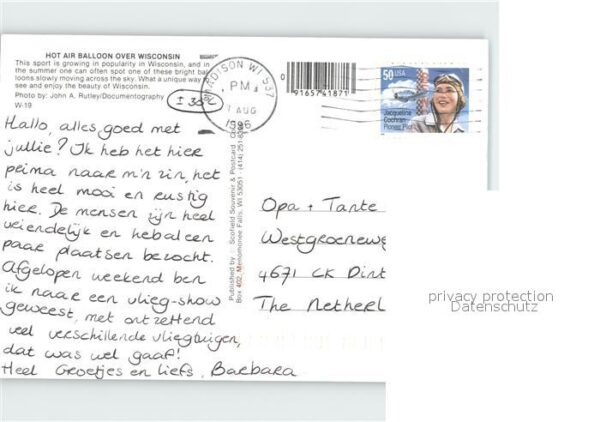 HOT AIR BALLOON OVER WISCONSIN
This sport is growing in popularity in Wisconsin, and in
the summer one can often spot one of these bright bal
loons slowly moving across the sky. What a unique way to
see and enjoy the beauty of Wisconsin.
Photo by: John A. Rutley/Documentography
W-19
I 30
Hallo, alles goed met
jullie? Ik heb het hier
prima naar m'n zin, het
is heel mooi en rustig
hier. De mensen zijn heel
vriendelijk en heb al een
paar plaatsen bezocht.
Afgelopen weekend ben
ik naar een vlieg-show
geweest, met ontzettend
veel verschillende vliegtuigen,
dat was wel gaaf!
Heel Groetjes en liefs, Barbara
Published by Scofield Souvenir & Postcard
Box 402, Menomonee Falls, WI 53051 - (414) 251-
MADISON WI 537
PM
1 AUG
1996
0
9165741871
50 USA
Jacqueline
Cochran
Pioneer Pilot
Opa + Tante
Westgroenewe
4671 CK Dint
The Netherl
privacy protection
Datenschutz